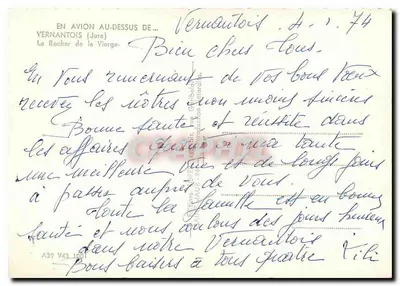 EN AVION AU-DESSUS DE...
VERNANTOIS (Jura)
Le Rocher de la Vierge
Vernantois 4.1.74
Bien chers Tous.
En vous remerciant de vos bons vœux
recevez les nôtres non moins sincères
Bonne santé et réussite dans
les affaires quand a ma tante
une meilleure vue et de longs jours
à passer auprès de vous.
toute la famille est en bonne
santé et nous coulons des jours heureux
dans notre Vernantois
Bons baisers à tous quatre Lili
A39 V43